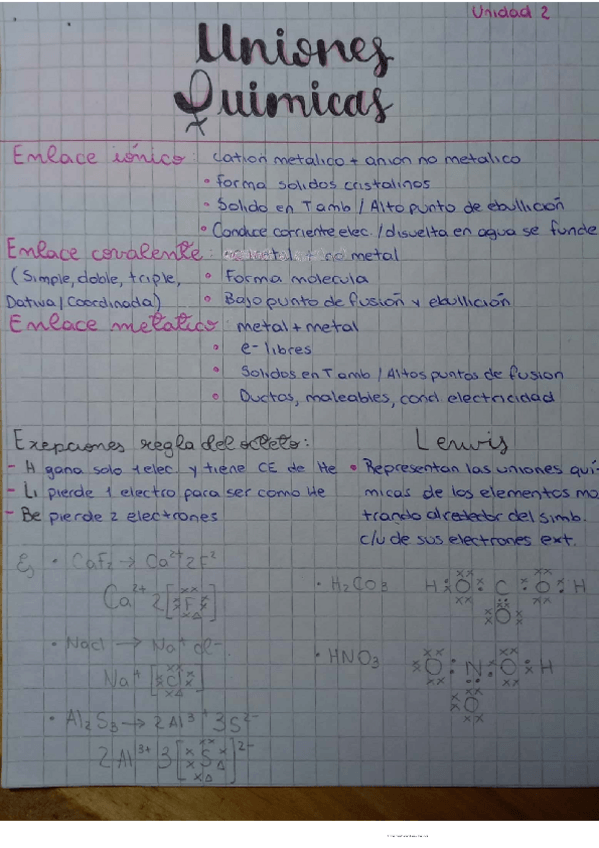 Unidad 2
Uniones
Químicas
Enlace iónico: Cation metalico + anion no metalico
• Forma solidos cristalinos
• Solido en Tamb / Alto punto de ebullición
• Conduce corriente elec. / disuelta en agua se funde
Enlace covalente: metal
(Simple, doble, triple, • Forma molecula
Dativa / Coordinada) • Bajo punto de fusión y ebullición
Enlace metalico: metal + metal
• e- libres
• Solidos en Tamb / Altos puntos de fusion
• Ductos, maleables, cond electricidad
Exepciones regla del octeto:
- H gana solo 1 elec. y tiene CE de He
- Li pierde 1 electro para ser como He
- Be pierde 2 electrones
Lewis
• Representan las uniones quí-
micas de los elementos mo
trando alrededor del simb.
c/u de sus electrones ext.
Ej • CaF2 → Ca2+ 2F
Ca2+ 2[F]
• NaCl → Na+ Cl-
Na+ [Cl]
• Al2S3 → 2Al3+ 3S2-
2Al3+ 3[S]2-
• H2CO3 H O C O H
O
• HNO3 O N O H
O